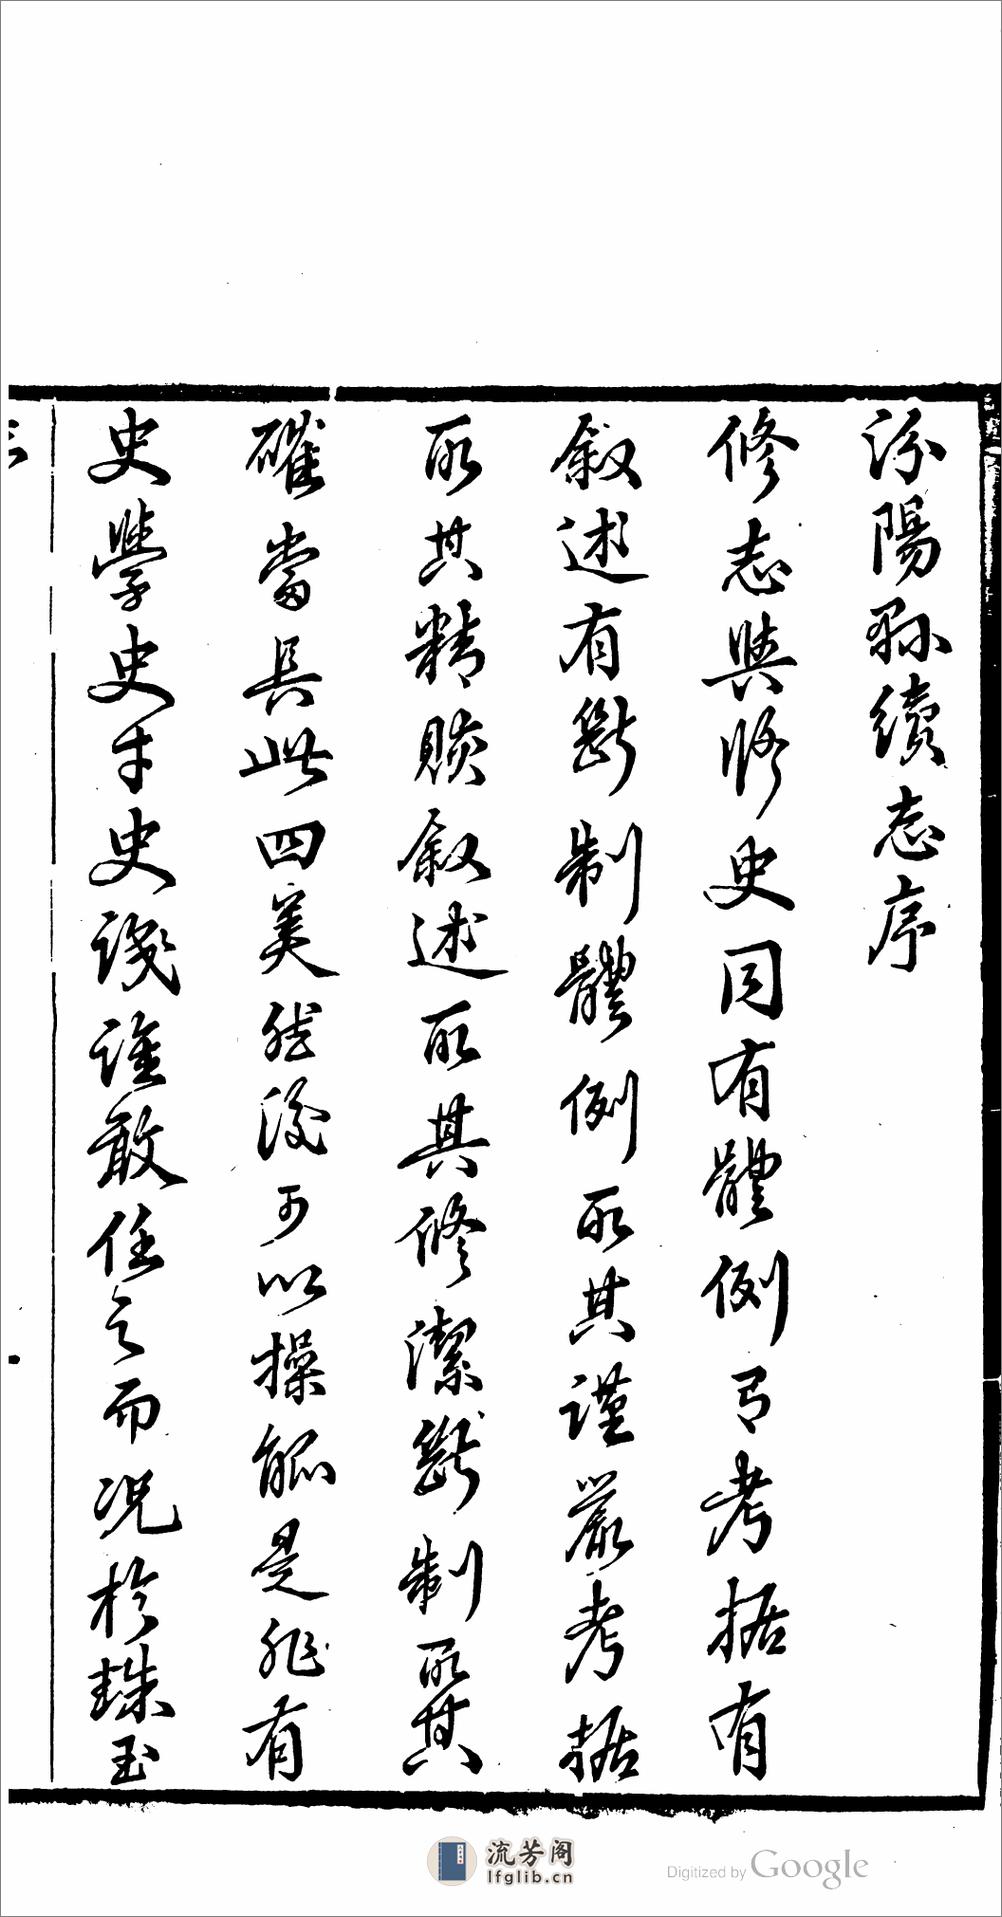 汾陽縣續志序
修志與修史同有體例有考据有
叙述有斷制體例取其謹嚴考據
取其精賅叙述取其修潔斷制取其
確當具此四美然後可以操觚是非有
史學史才史識誰敢任之而況於珠玉
流芳阁
lfglib.cn
Digitized by Google